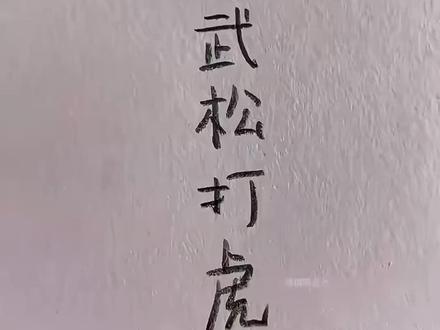 武松打虎